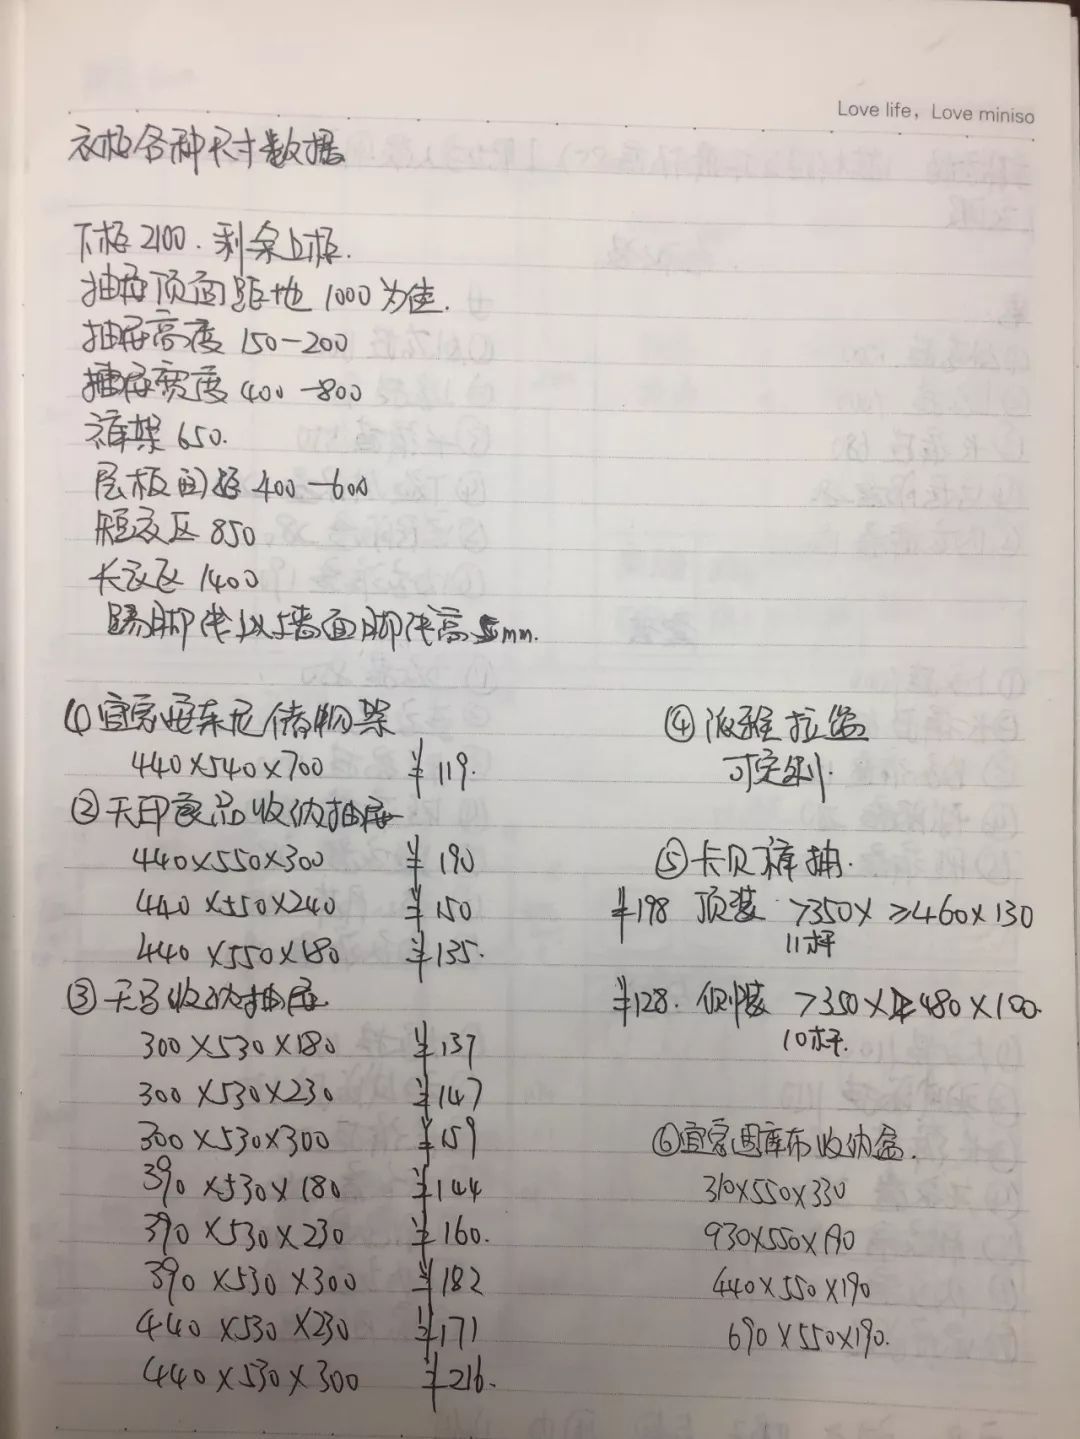 Love life, Love miniso
衣柜各种尺寸数据
下柜2100.剩余上柜.
抽屉顶面距地1000为佳.
抽屉高度150-200
抽屉宽度400-800
裤架650.
层板间距400-600
短衣区850
长衣区1400
踢脚线以墙面脚线高5mm.
① 宜家安东尼储物架
440×540×700 ¥119.
②天印良品收纳抽屉
440×550×300 ¥190
440×550×240 ¥150
440×550×180 ¥135.
③天马收纳抽屉
300×530×180 ¥137
300×530×230 ¥147
300×530×300 ¥159
390×530×180 ¥144
390×530×230 ¥160.
390×530×300 ¥182
440×530×230 ¥171
440×530×300 ¥216.
④派雅拉篮
可定制.
⑤卡贝裤抽.
¥198 顶装 >350×≥460×130
11杆
¥128. 侧装 >350×≥480×100.
10杆.
⑥宜家思库布收纳盒.
310×550×330
930×550×190
440×550×190
690×550×190.